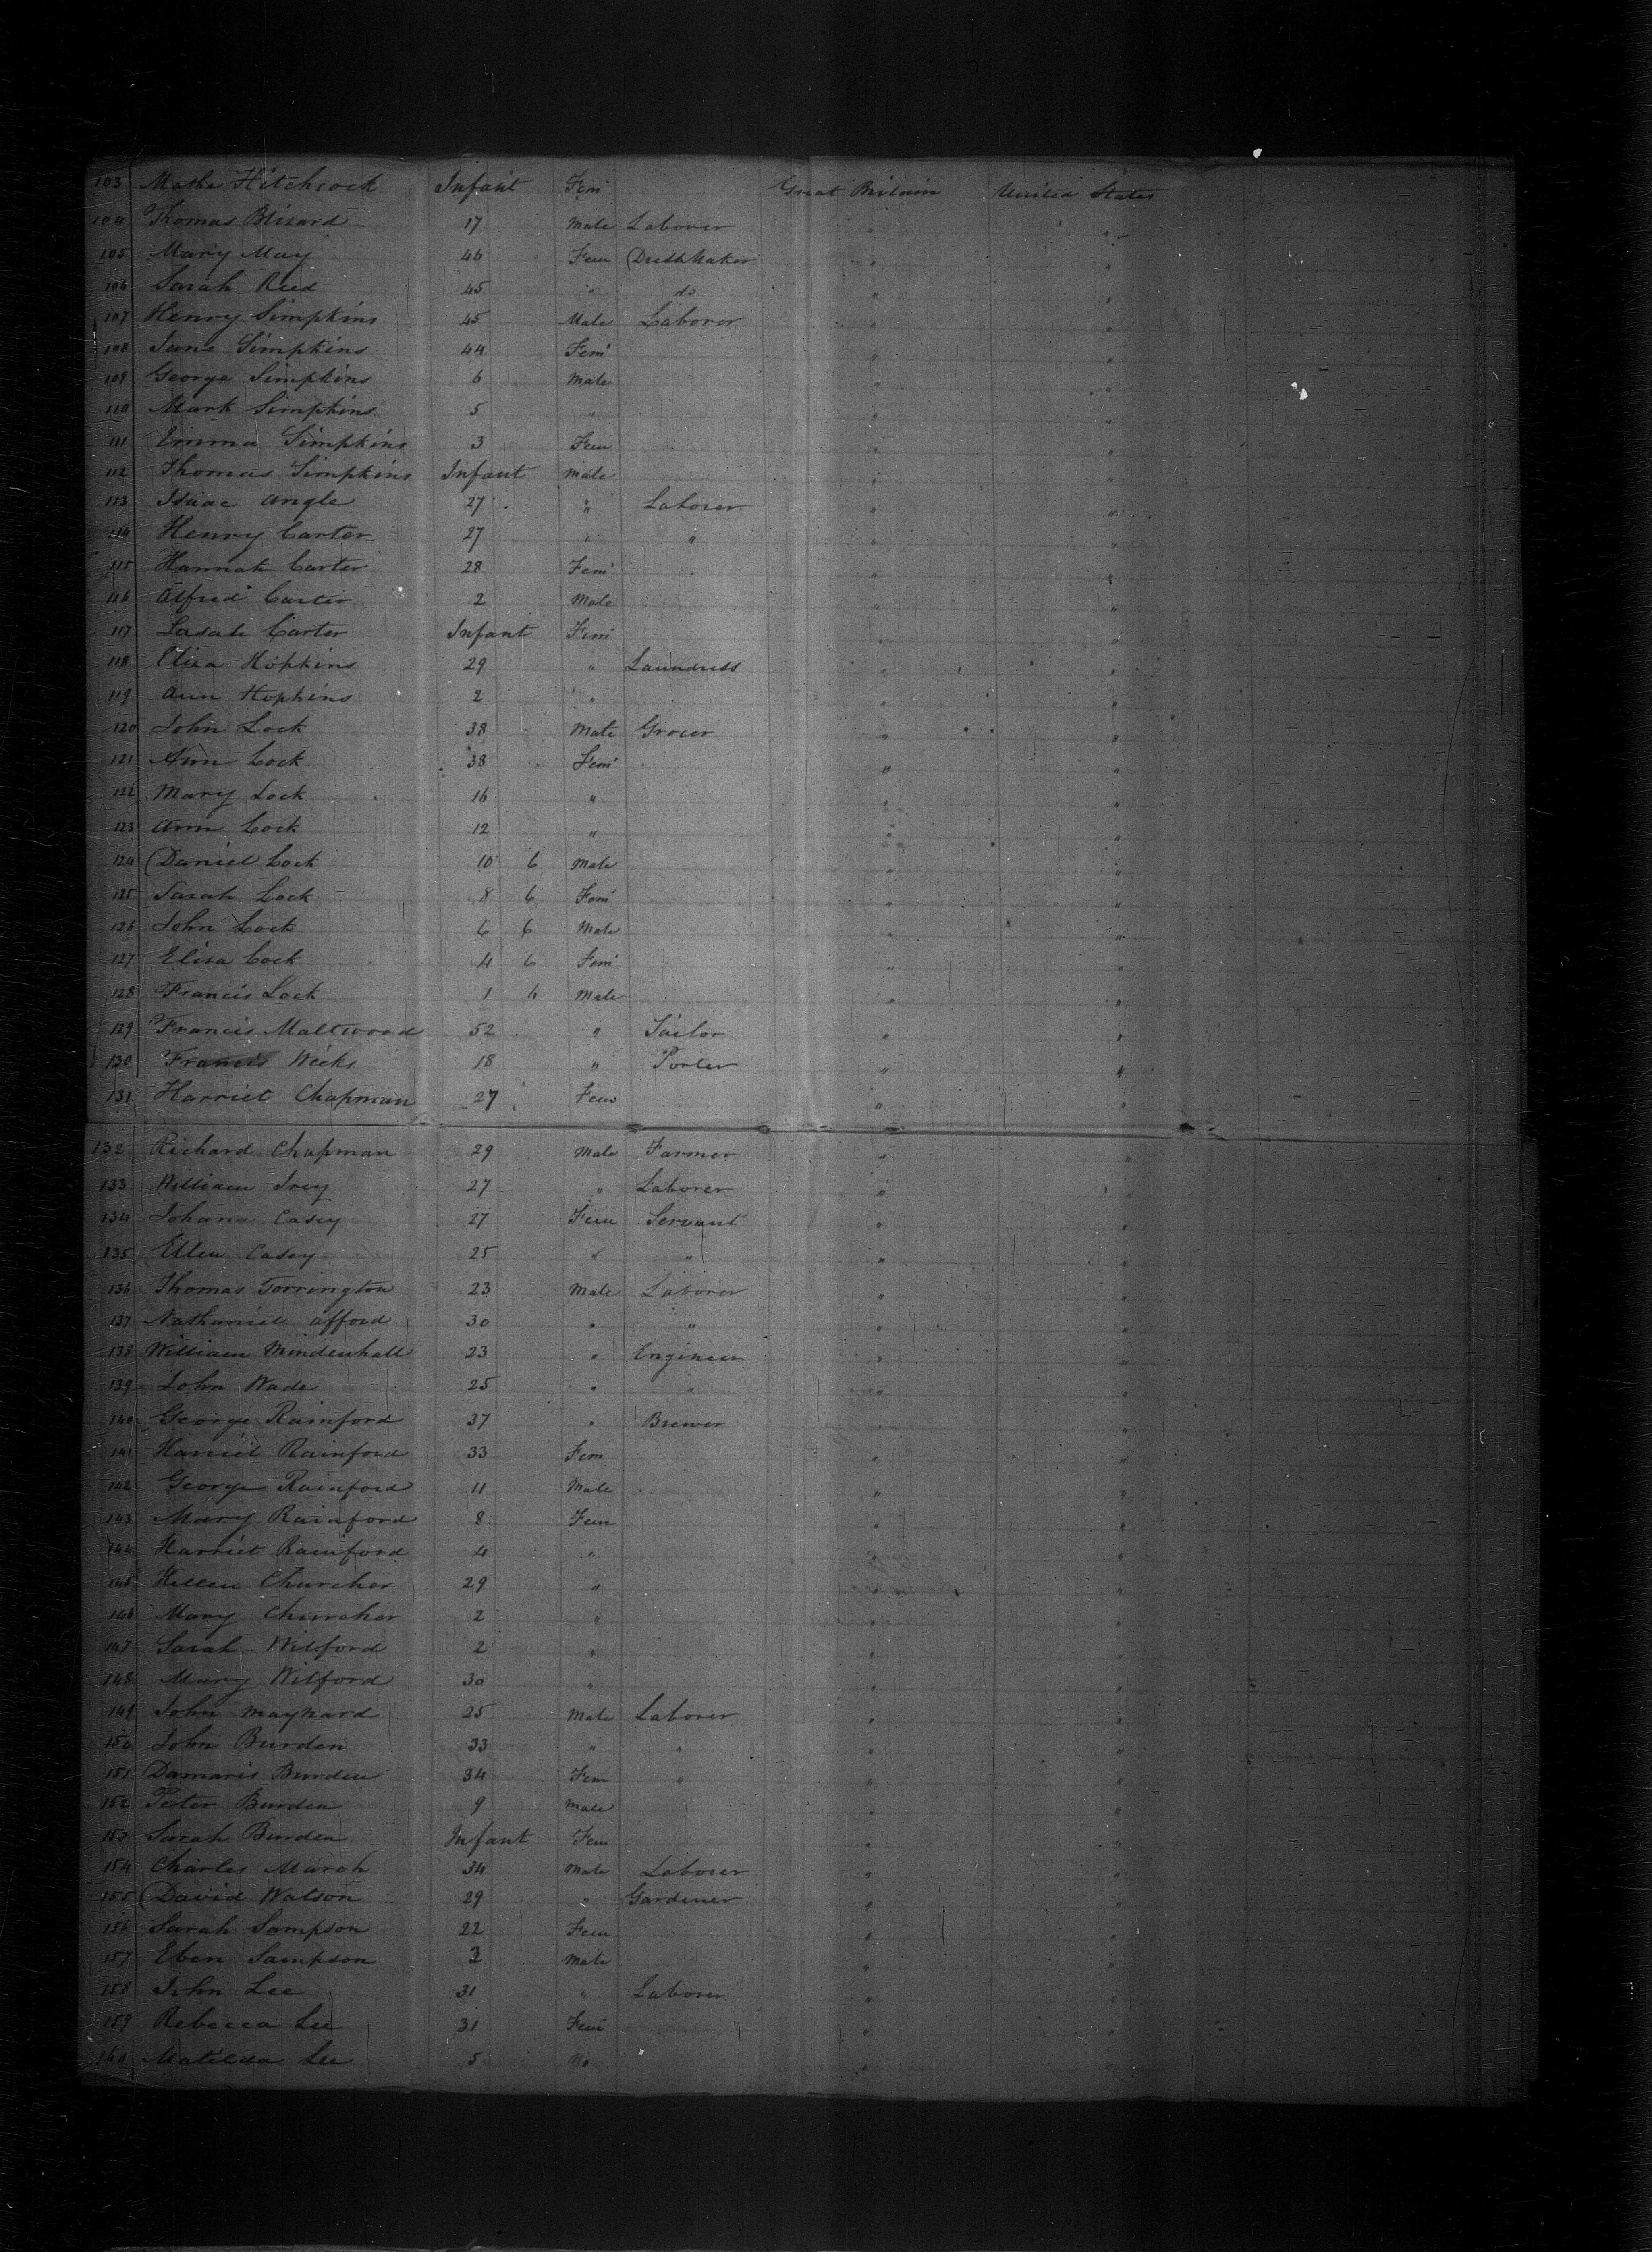 103 Matha Hitchcock Infant Fem Great Britain United States
104 Thomas Blizard 17 Male Laborer " "
105 Mary May 46 Fem Dressmaker " "
106 Sarah Reed 45 " do " "
107 Henry Simpkins 45 Male Laborer " "
108 Jane Simpkins 44 Fem " "
109 George Simpkins 6 Male " "
110 Mark Simpkins 5 " " "
111 Emma Simpkins 3 Fem " "
112 Thomas Simpkins Infant Male " "
113 Isaac Angle 27 " Laborer " "
114 Henry Carter 27 " " " "
115 Hannah Carter 28 Fem " "
116 Alfred Carter 2 Male " "
117 Sarah Carter Infant Fem " "
118 Eliza Hopkins 29 " Laundress " "
119 Ann Hopkins 2 " " "
120 John Lock 38 Male Grocer " "
121 Ann Lock 38 Fem " "
122 Mary Lock 16 " " "
123 Ann Lock 12 " " "
124 Daniel Lock 10 6 Male " "
125 Sarah Lock 8 6 Fem " "
126 John Lock 6 6 Male " "
127 Eliza Lock 4 6 Fem " "
128 Francis Lock 1 4 Male " "
129 Francis Maltwood 52 " Tailor " "
130 Francis Weeks 18 " Porter " "
131 Harriet Chapman 27 Fem " "
132 Richard Chapman 29 Male Farmer " "
133 William 27 " Laborer " "
134 Johana Casey 27 Fem Servant " "
135 Ellen Casey 25 " " " "
136 Thomas Torrington 23 Male Laborer " "
137 Nathaniel afford 30 " " " "
138 William Mindenhall 23 " Engineer " "
139 John Wade 25 " " " "
140 George Rainford 37 " Brewer " "
141 Harriet Rainford 33 Fem " "
142 George Rainford 11 Male " "
143 Mary Rainford 8 Fem " "
144 Harriet Rainford 4 " " "
145 Hellen Churcher 29 " " "
146 Mary Churcher 2 " " "
147 Sarah Wilford 2 " " "
148 Mary Wilford 30 " " "
149 John Maynard 25 Male Laborer " "
150 John Burden 33 " " " "
151 Damaris Burden 34 Fem " " "
152 Peter Burden 9 Male " "
153 Sarah Burden Infant Fem " "
154 Charles March 34 Male Laborer " "
155 David Watson 29 " Gardener " "
156 Sarah Sampson 22 Fem " "
157 Eben Sampson 3 Male " "
158 John Lee 31 " Laborer " "
159 Rebecca Lee 31 Fem " "
160 Matilda Lee 5 " "